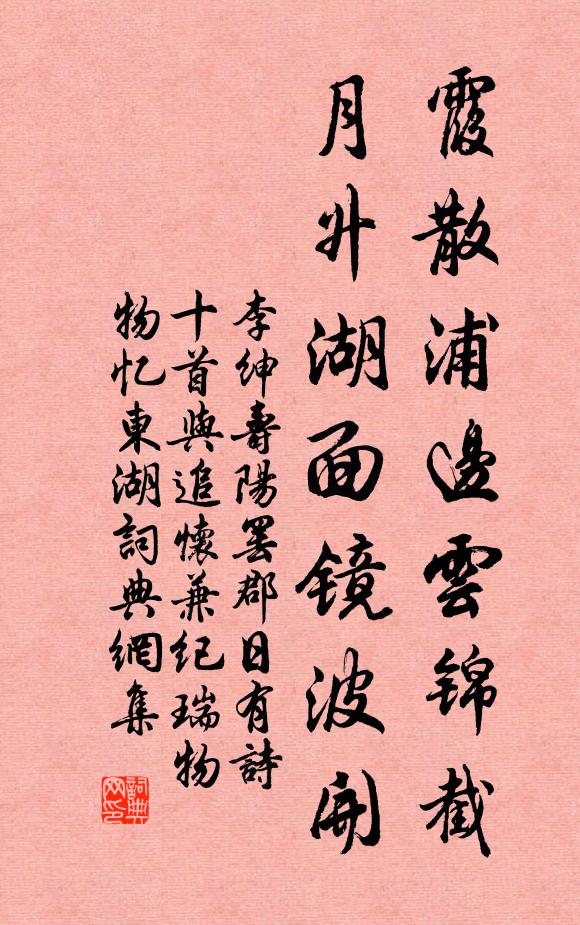 霞散浦邊雲錦截
月升湖面镜波開
李紳壽陽罢郡日有詩
十首與追懷兼纪瑞物
物忆東湖詞典網集
詞典
网印